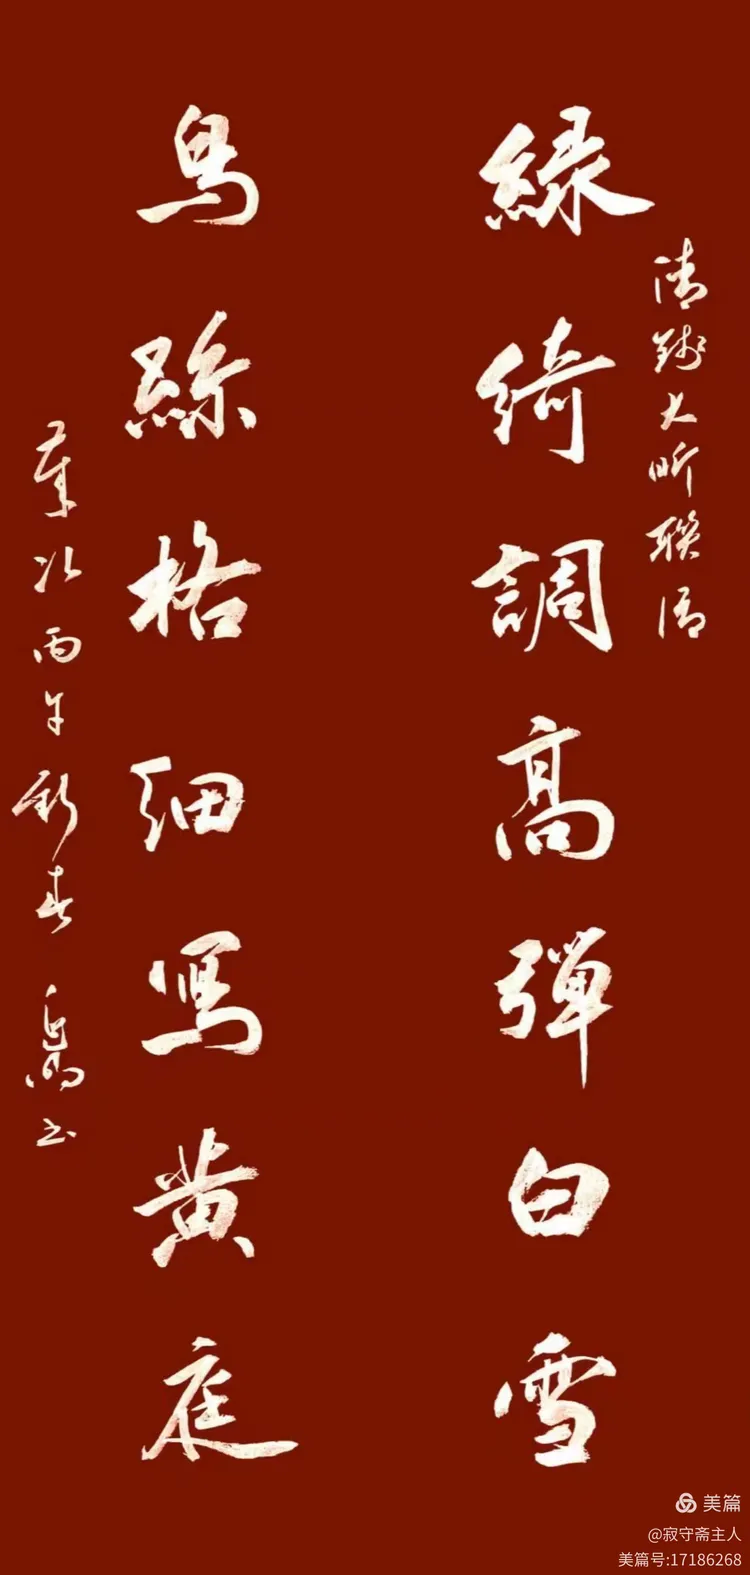 清錢大昕聯語
綠綺調高彈白雪
烏絲格細寫黃庭
歲次丙午新春書
美篇
@寂守斋主人
美篇号:17186268